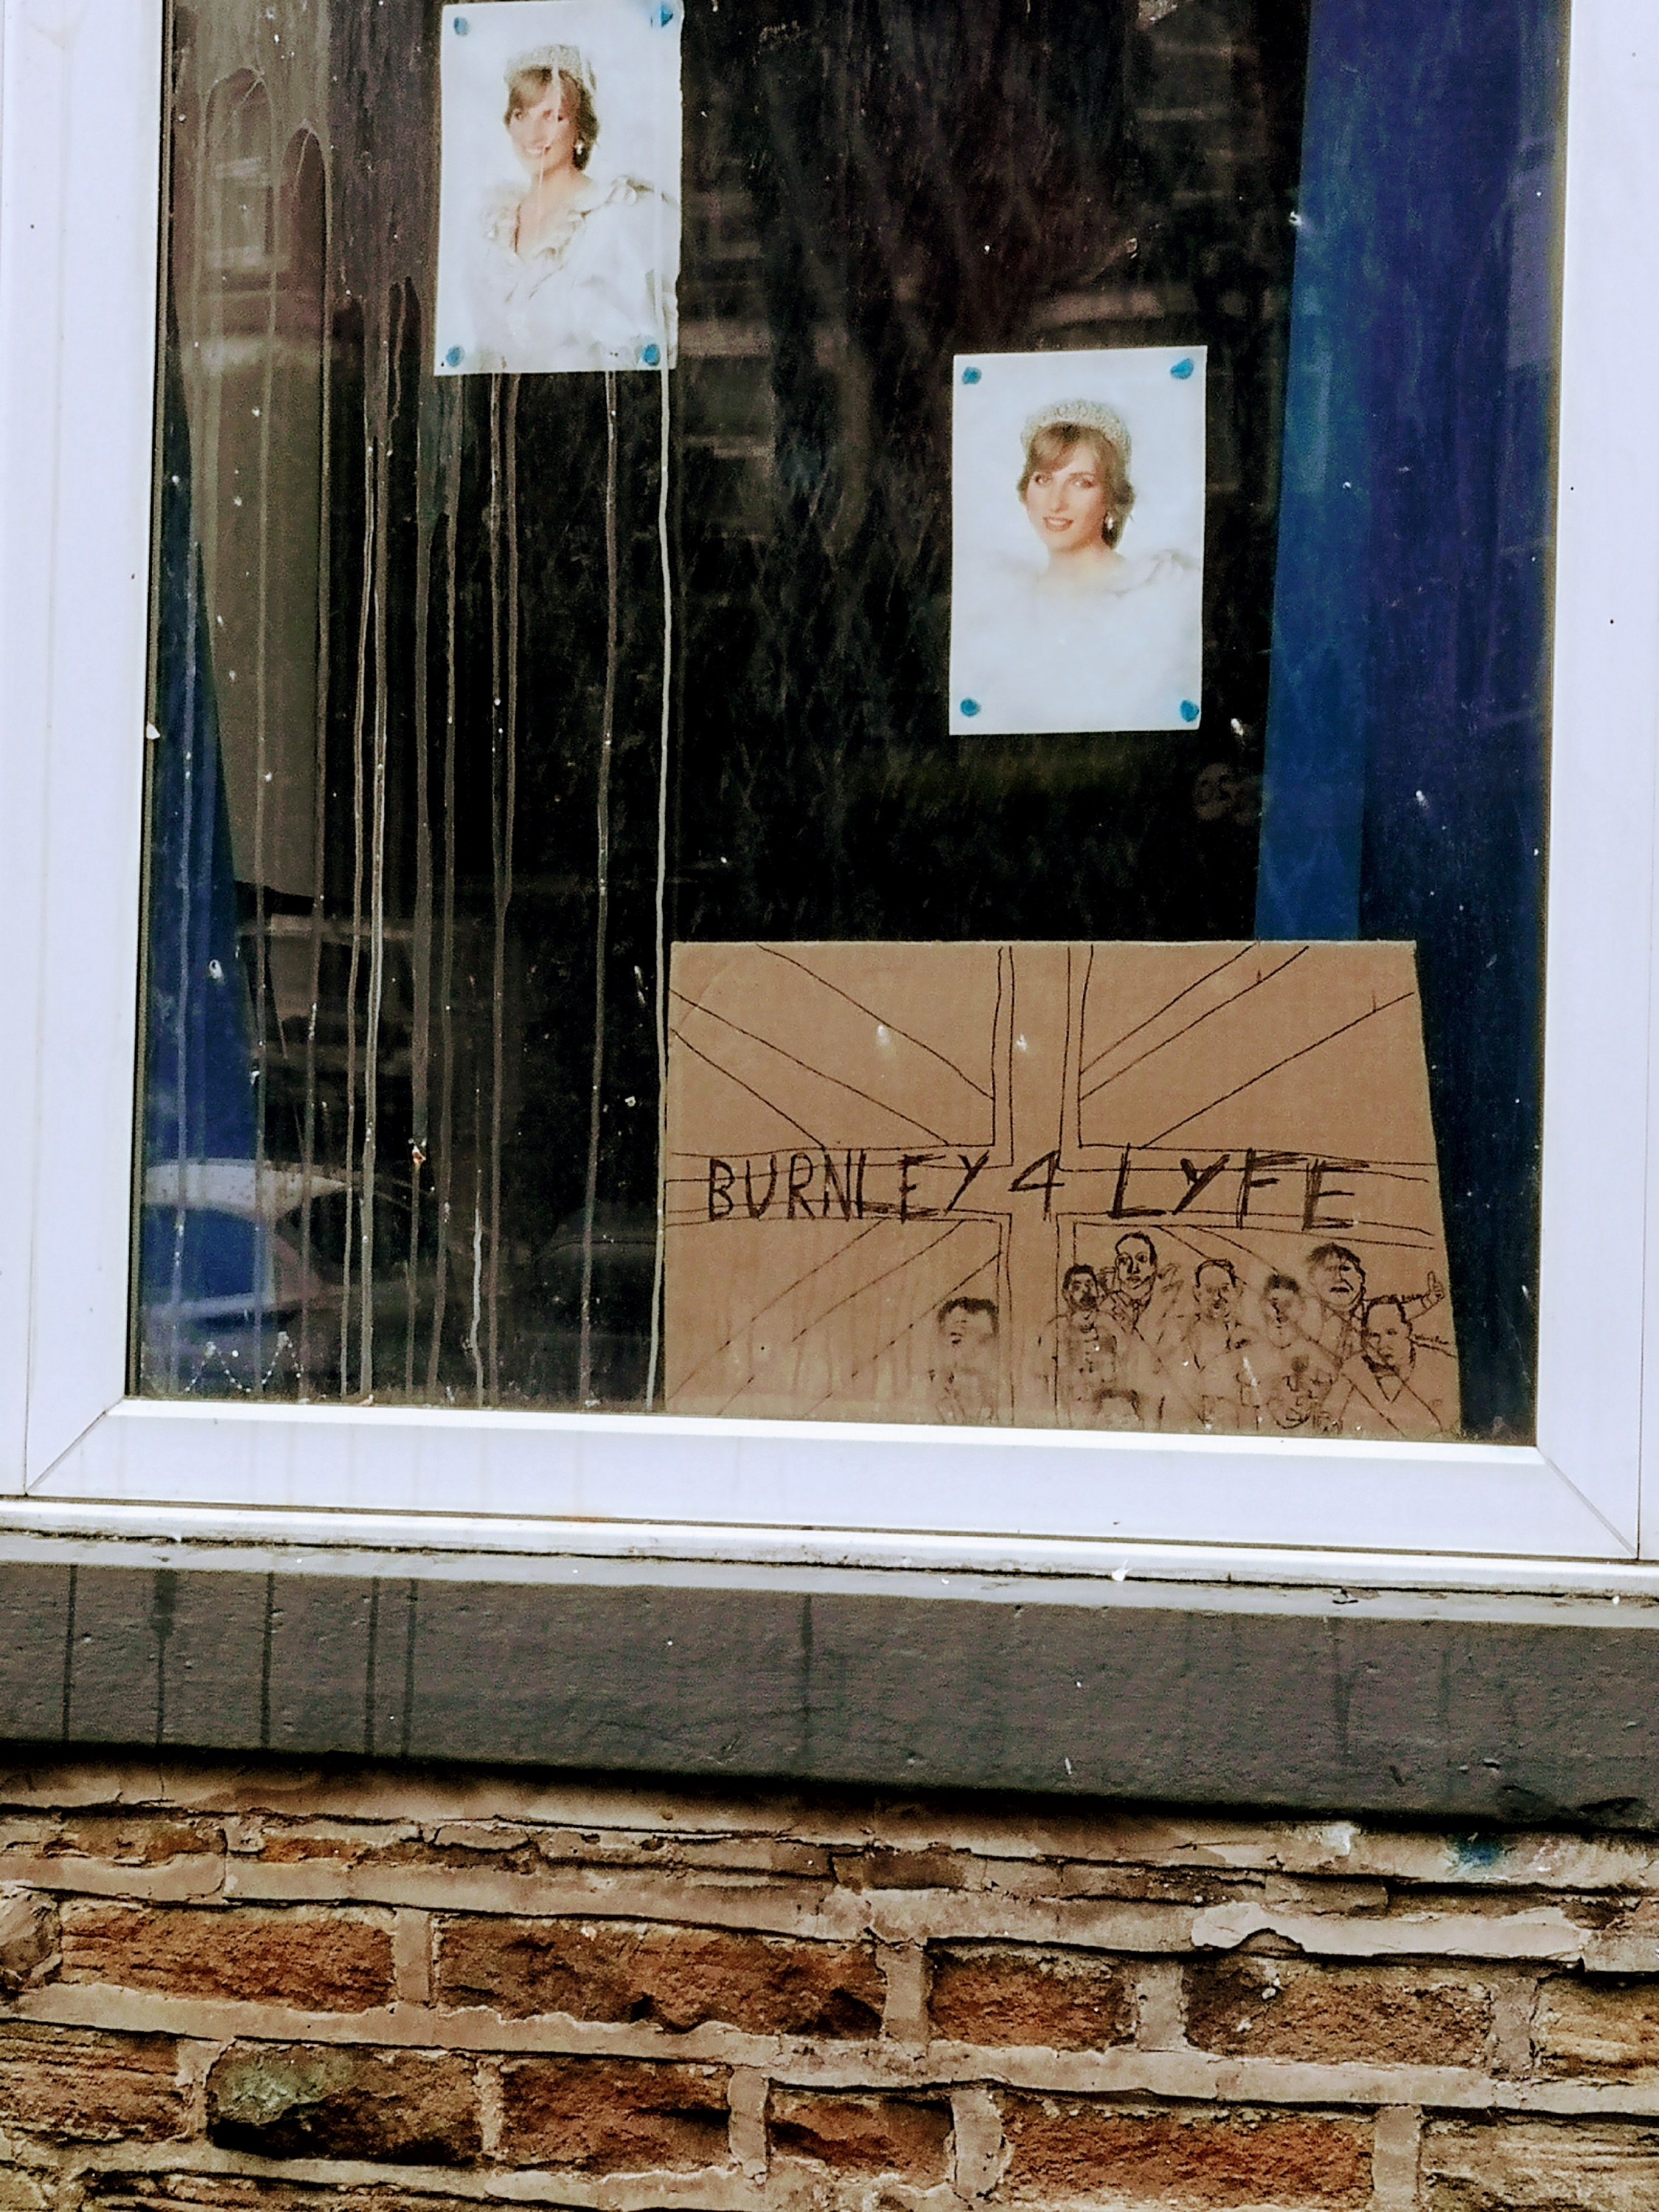 BURNLEY 4 LYFE